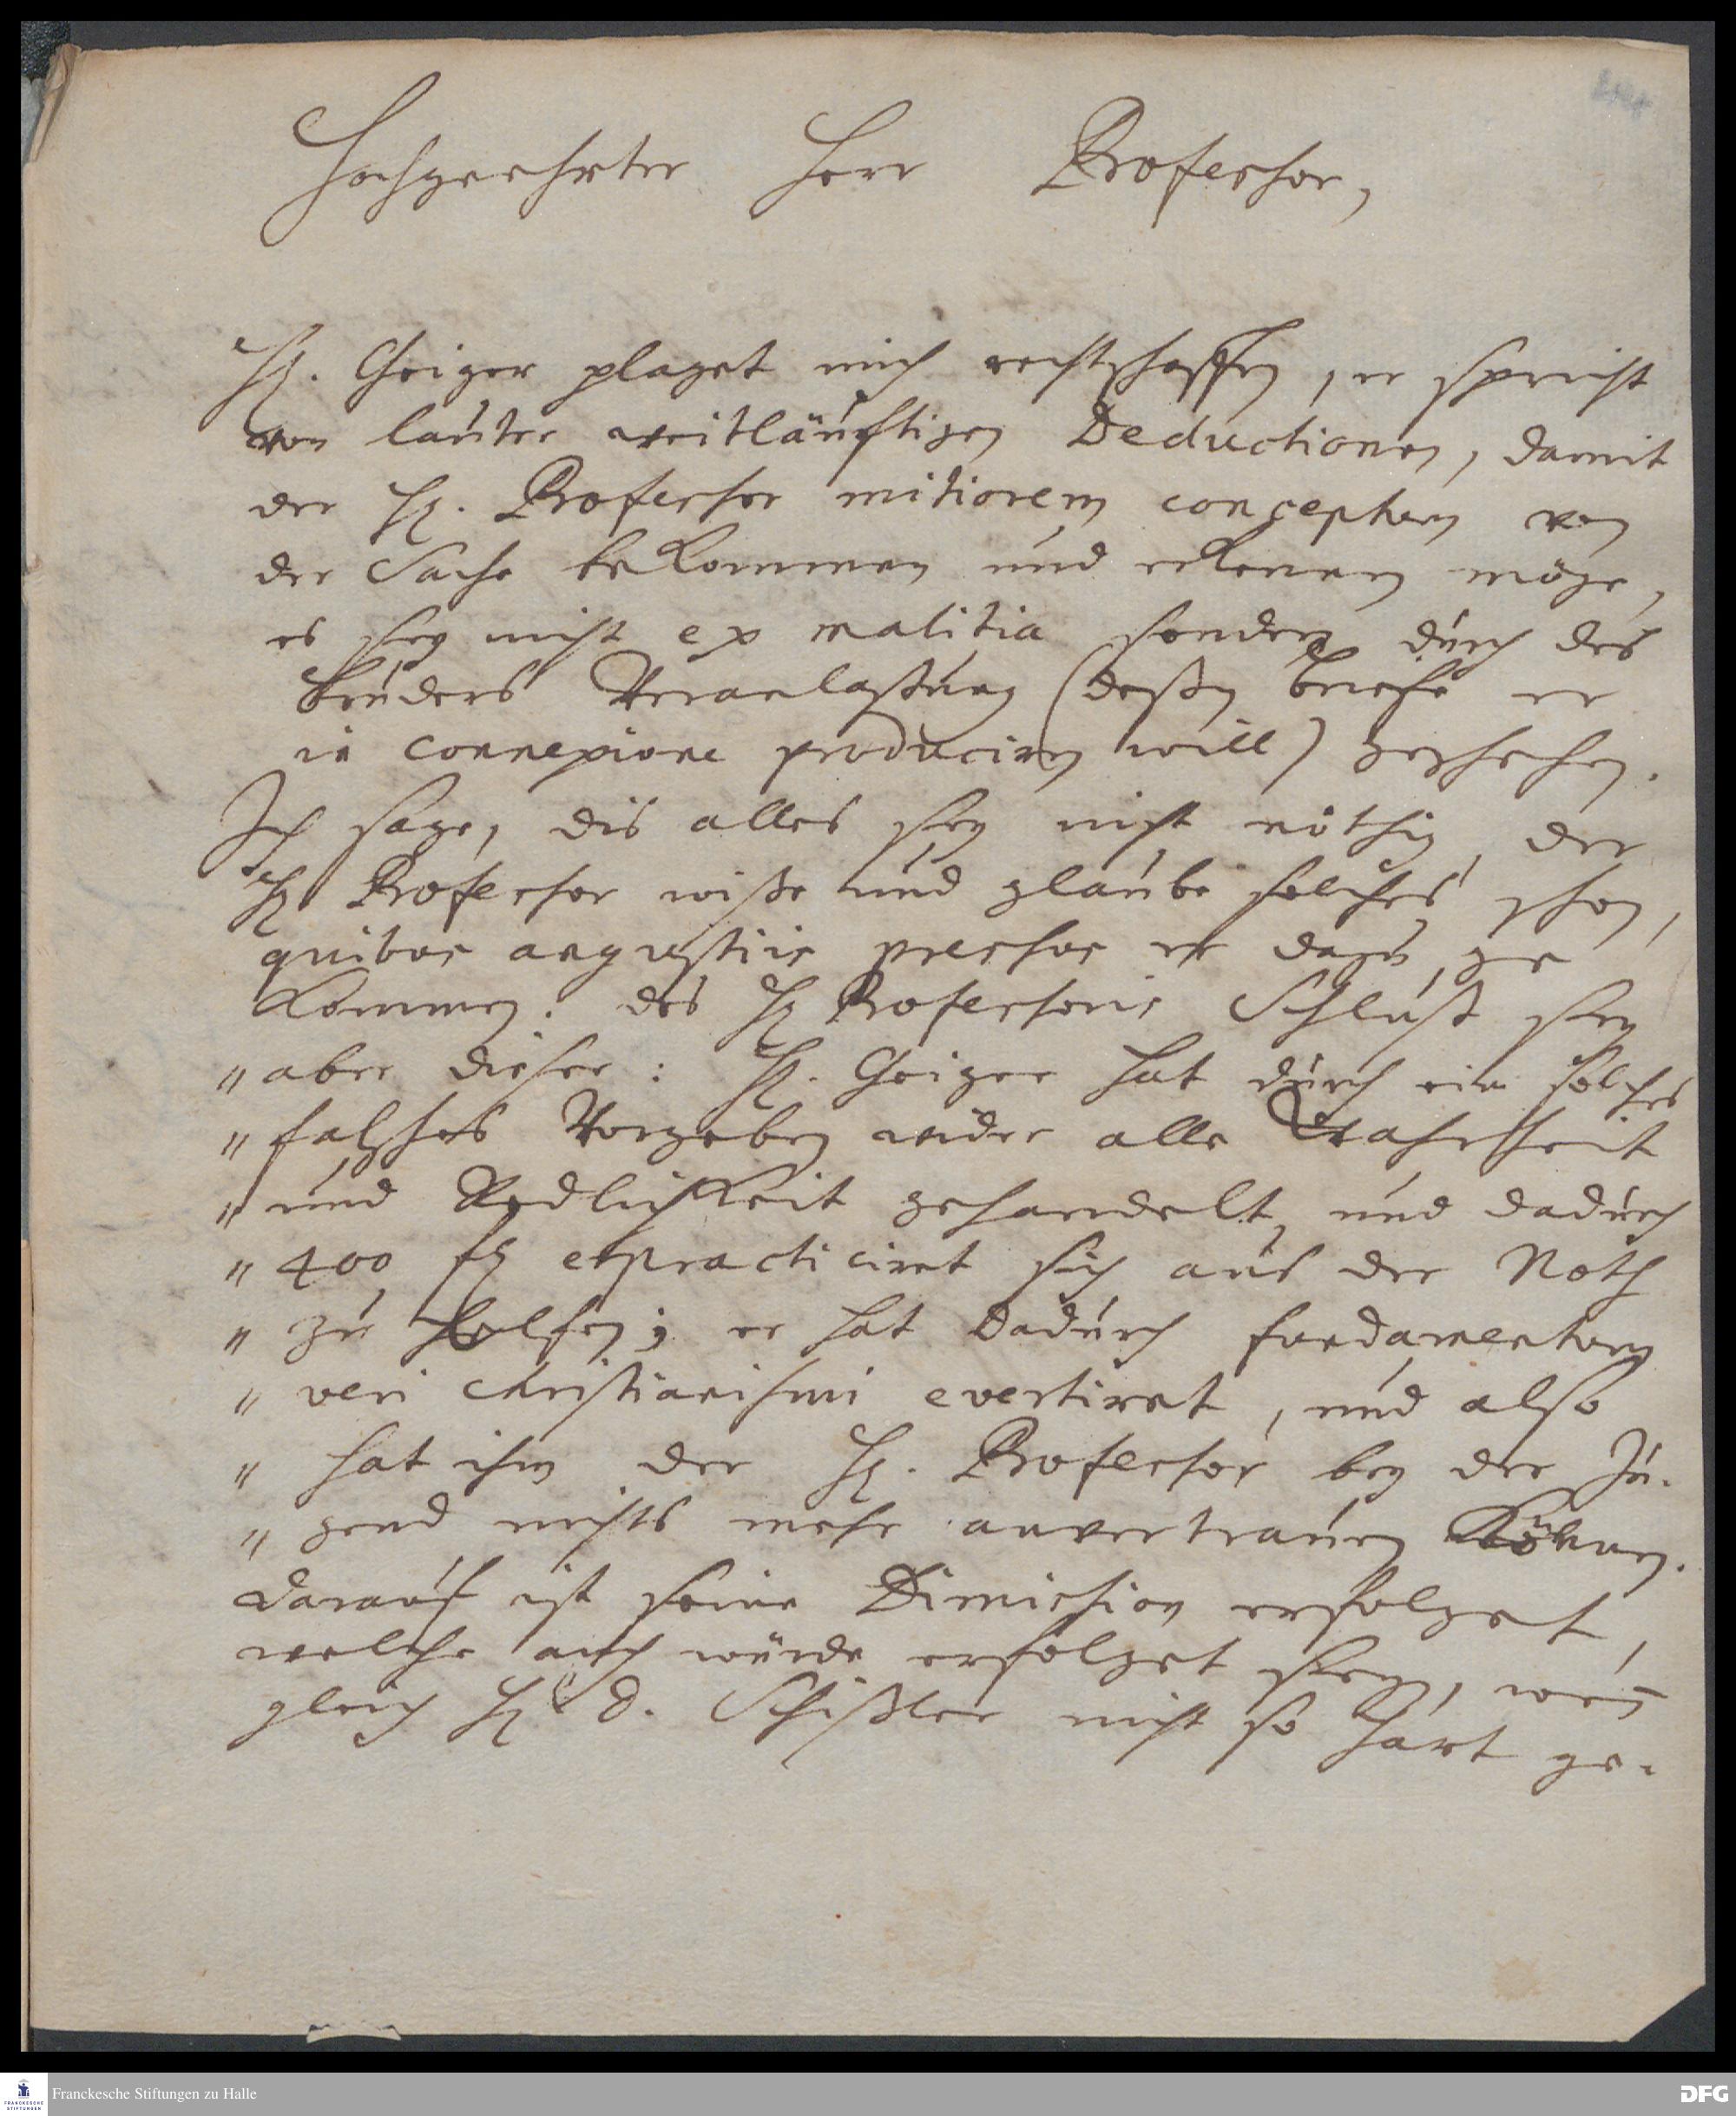 Hochgeehrter Herr Professor,
H. Geiger plaget mich rechtschaffen, er spricht
von lauter weitläufftigen Deductionen, damit
der H. Professor mitiorem conceptum von
der Sache bekommen und erkennen möge,
es sey nicht ex malitia sondern durch des
Bruders Veranlaßung (deßen briefe er
in connexione produciren will) geschehen.
Ich sage, dis alles sey nicht nöthig, der
H Professor wiße und glaube solches schon,
quibus angustiis pressus er dazu ge
kommen. des H Professoris Schluß sey
" aber dieser: H. Geiger hat durch ein solches
" falsches Vorgeben wider alle Wahrheit
" und Redlichkeit gehandelt, und dadurch
" 400 fl expracticiret sich aus der Noth
" zu helfen; er hat dadurch fundamentum
" veri christianismi evertiret, und also
" hat ihm der H. Professor bey der Ju-
" gend nichts mehr anvertrauen können.
darauf ist seine Dimission erfolget,
welche auch würde erfolget seyn, wenn
gleich H D. Schißler nicht so hart ge-
Franckesche Stiftungen zu Halle
FRANCKESCHE
STIFTUNGEN
DFG